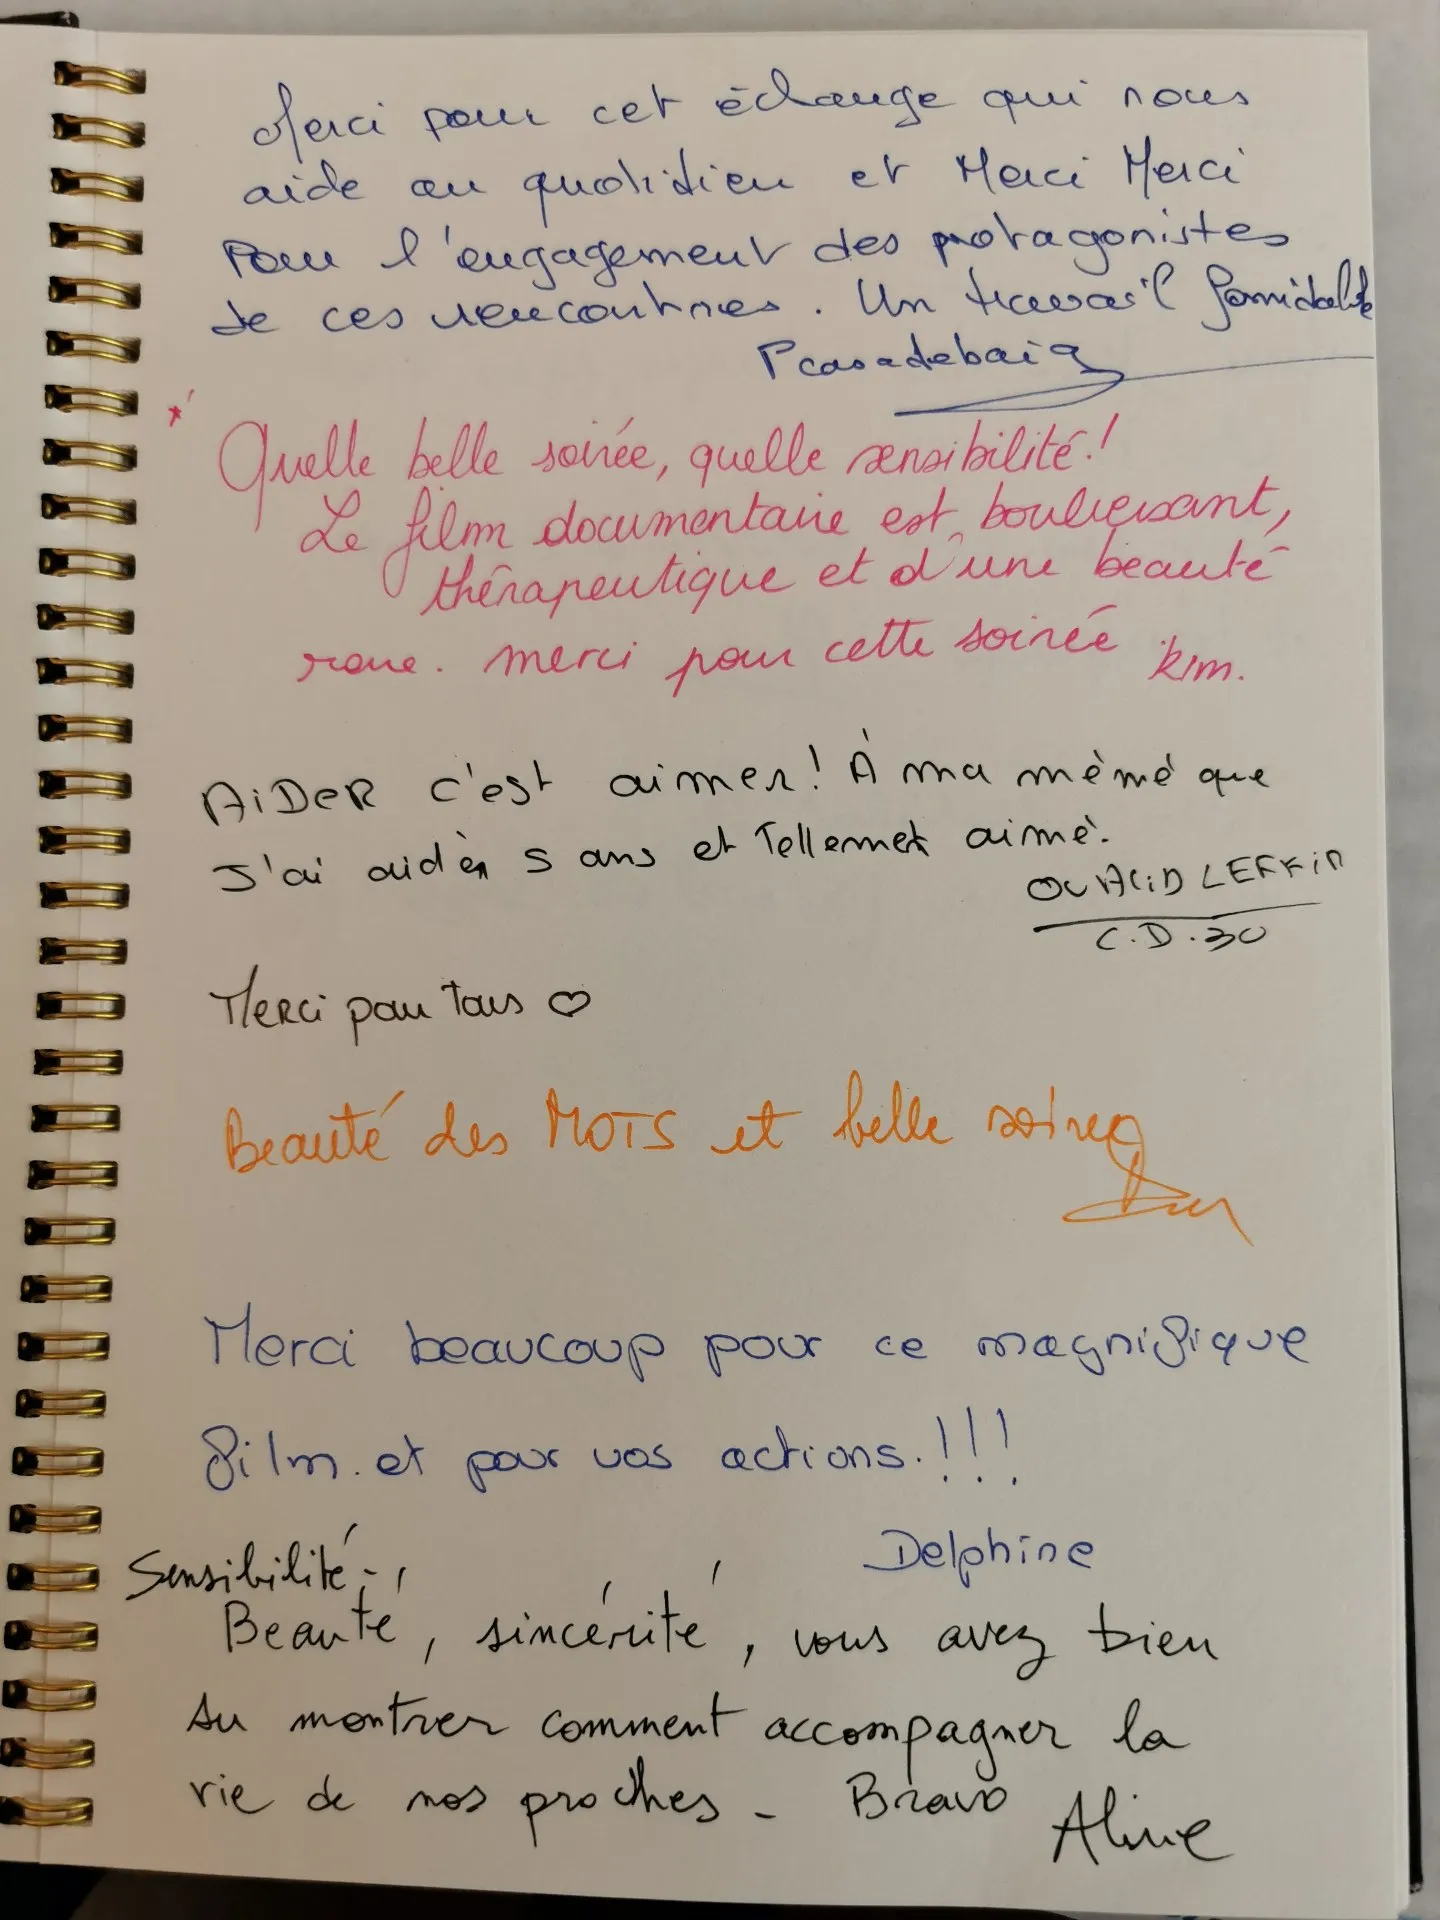 Merci pour cet échange qui nous
aide au quotidien et Merci Merci
Pour l'engagement des protagonistes
de ces rencontres. Un travail formidable
Pcasadebaig
Quelle belle soirée, quelle sensibilité!
Le film documentaire est bouleversant,
thérapeutique et d'une beauté
rare. merci pour cette soirée kim.
AiDER c'est aimer! À ma mémé que
J'ai aidée 5 ans et Tellement aimé.
C.D.30
Merci pour Tous ♡
Beauté des MOTS et belle soirée
Merci beaucoup pour ce magnifique
film. et pour vos actions.!!!
Delphine
Sensibilité,
Beauté, sincérité, vous avez bien
su montrer comment accompagner la
vie de nos proches - Bravo
Aline